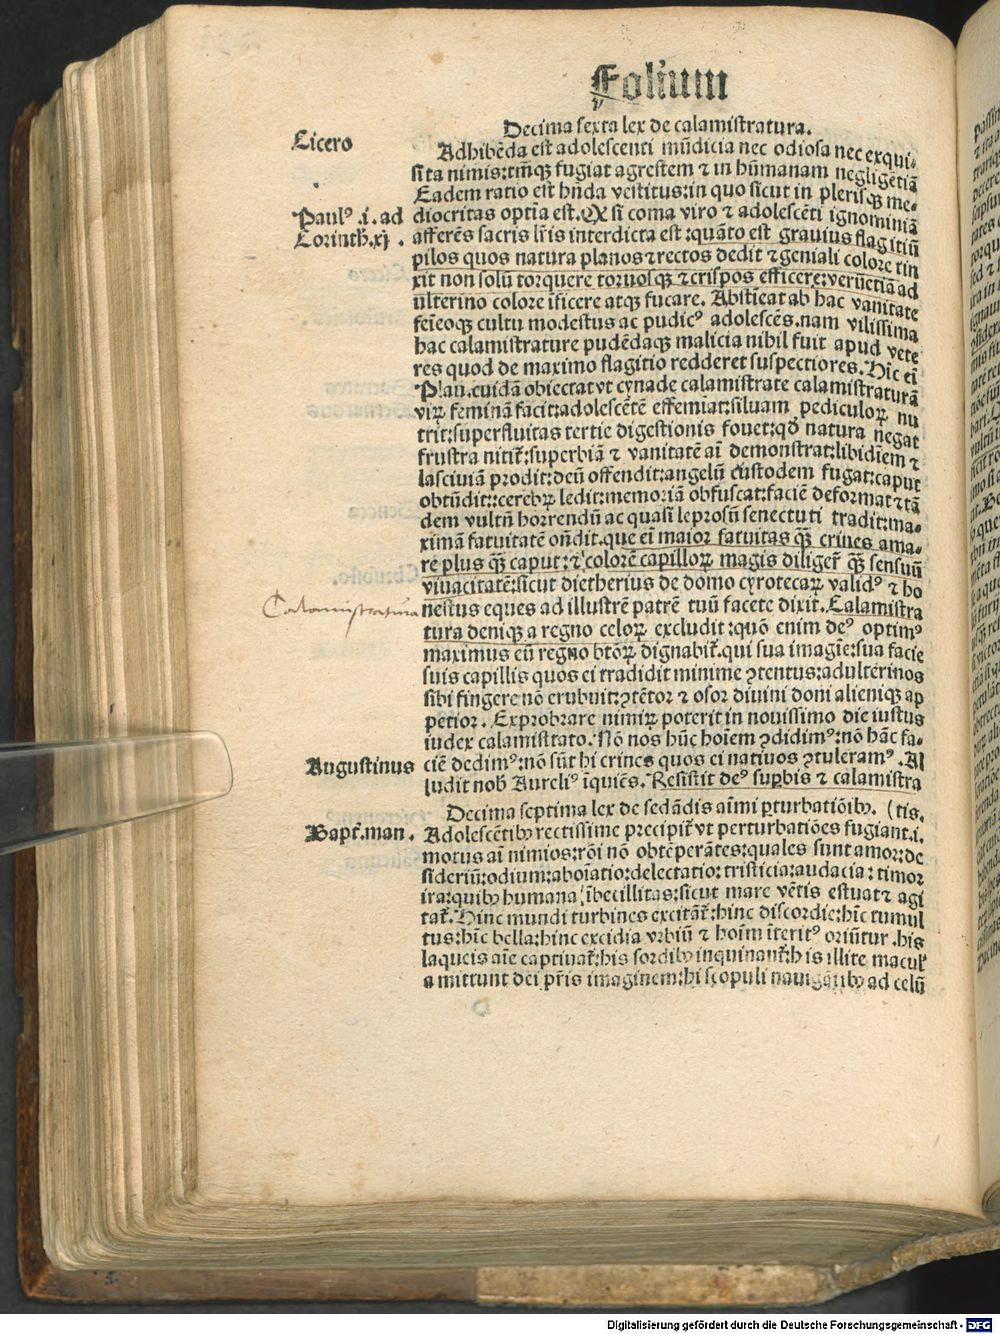 Foliũm
Decima sexta lex de calamistratura.
Cicero
Adhibẽda est adolescenti mũdicia nec odiosa nec exqui-
sita nimis: tm̃qꝫ fugiat agrestem ⁊ in hũmanam negligẽtiã
Eadem ratio est hñda vestitus: in quo sicut in plerisqꝫ me-
Paulꝰ .i. ad
diocritas optĩa est. Et si coma viro ⁊ adolescẽti ignominiã
Corinth. xj.
afferẽs sacris lr̃is interdicta est: quãto est grauius flagitiũ
pilos quos natura planos ⁊ rectos dedit ⁊ geniali colore tin
xit non solũ torquere toruosqꝫ ⁊ crispos efficere: verũetiã ad
ulterino colore ĩficere atqꝫ fucare. Abstĩeat ab hac vanitate
feĩeoqꝫ cultu modestus ac pudicꝰ adolescẽs. nam vilissima
hac calamistrature pudẽdaqꝫ malicia nihil fuit apud vete
res quod de maximo flagitio redderet suspectiores. Hĩc eĩ
Plau. cuidã obiectat vt cynade calamistrate calamistraturã
viꝝ feminã facit: adolescẽtẽ effemĩat: siluam pediculoꝝ nu
trit: superfluitas tertie digestionis fouet: qđ natura negat
frustra nitit̃: superbiã ⁊ vanitatẽ aĩ demonstrat: libidĩem ⁊
lasciuiã prodit: deũ offendit: angelũ custodem fugat: caput
obtũdit: cerebꝝ ledit: memoriã obfuscat: faciẽ deformat ⁊ tã
dem vultũ horrendũ ac quasi leprosũ senectuti tradit: ma-
ximã fatuitatẽ oñdit. que eĩ maior fatuitas qꝫ̃ crines ama-
re plus qꝫ̃ caput: ⁊ colorẽ capilloꝝ magis diliger̃ qꝫ̃ sensuũ
viuacitatẽ: sicut dietherius de domo cyrotecaꝝ validꝰ ⁊ ho
Calamistratura
nestus eques ad illustrẽ patrẽ tuũ facete dixit. Calamistra
tura deniqꝫ a regno celoꝝ excludit: quõ enim deꝰ optimꝰ
maximus eũ regno btõꝝ dignabit̃. qui sua imagĩe: sua facie
suis capillis quos ei tradidit minime ꝯtentus: adulterinos
sibi fingere nõ erubuit: ꝯtẽtor ⁊ osor diuini doni alieniqꝫ ap
petior. Exprobrare nimiꝝ poterit in nouissimo die iustus
iudex calamistrato. Nõ nos hũc hoĩem ꝯdidimꝰ: nõ hãc fa-
Augustinus
ciẽ dedimꝰ: nõ sũt hi crines quos ei natiuos ꝯtuleramꝰ. Al
ludit nob̃ Aureliꝰ ĩquiẽs. Resistit deꝰ suꝑbis ⁊ calamistra
Decima septima lex de sedãdis aĩmi ꝑturbatiõibꝫ. (tis.
Bapt̃. man.
Adolescẽtibꝫ rectissime precipit̃ vt perturbatiões fugiant. i.
motus aĩ nimios: rõi nõ obtẽperãtes: quales sunt amor: de
sideriũ: odium: aboiatio: delectatio: tristicia: audacia: timor
ira: quibꝫ humana ĩbecillitas: sicut mare vẽtis estuat ⁊ agi
tat̃. Hinc mundi turbines excitãt̃: hinc discordie: hĩc tumul
tus: hĩc bella: hinc excidia vrbiũ ⁊ hoĩm ĩteritꝰ oriũtur. his
laqueis aĩe captiuãt̃: his sordibꝫ inquinant̃: his illite macul̃
amittunt dei pr̃is imaginem: hi scopuli nauigãtibꝫ ad celũ
Digitalisierung gefördert durch die Deutsche Forschungsgemeinschaft - DFG